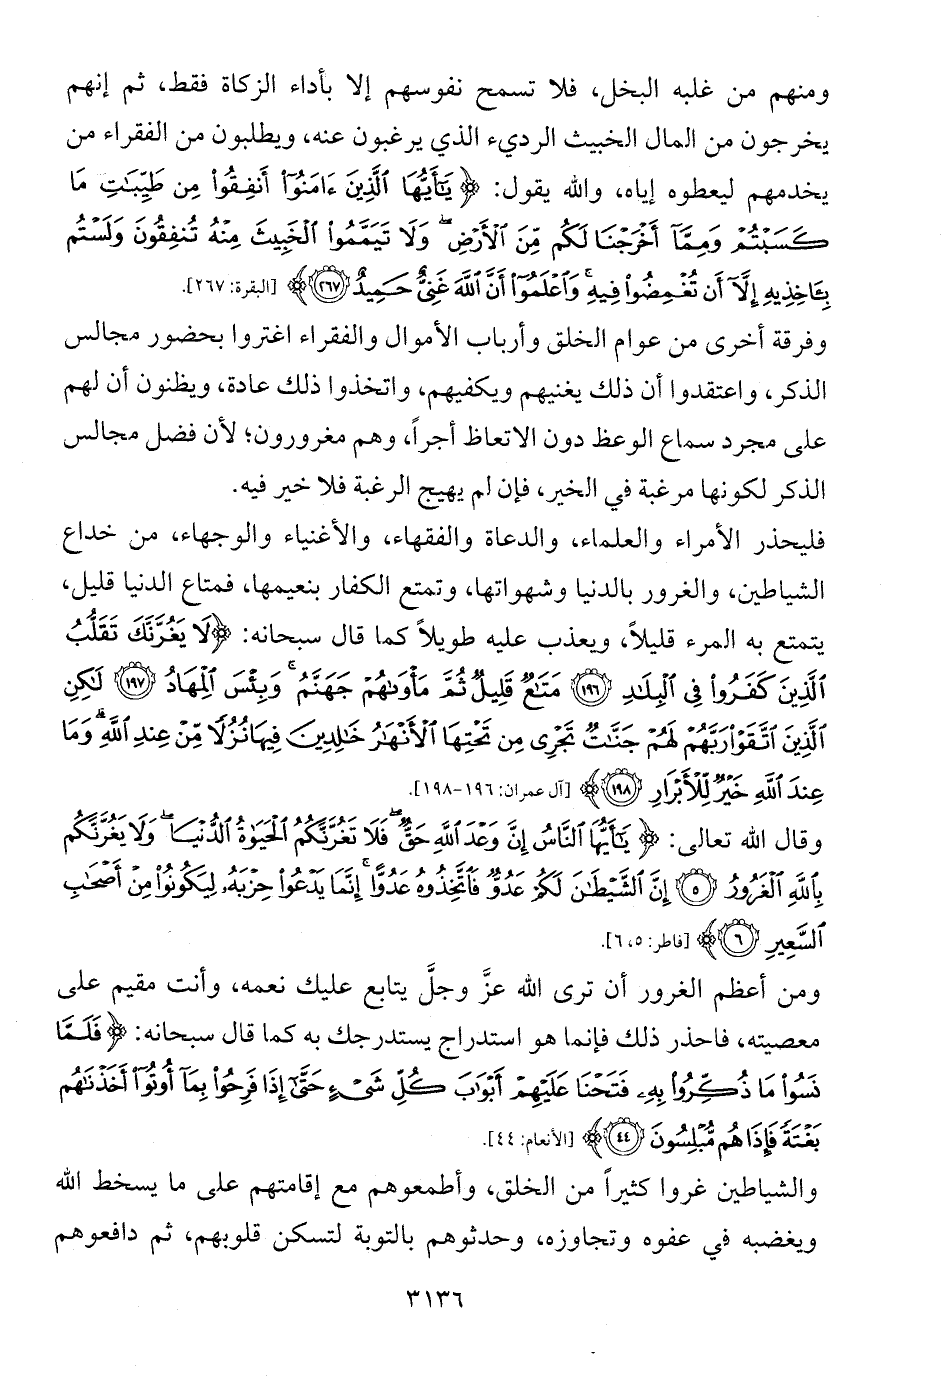 ومنهم من غلبه البخل، فلا تسمح نفوسهم إلا بأداء الزكاة فقط، ثم إنهم
يخرجون من المال الخبيث الرديء الذي يرغبون عنه، ويطلبون من الفقراء من
يخدمهم ليعطوه إياه، والله يقول: ﴿ يَٰٓأَيُّهَا ٱلَّذِينَ ءَامَنُوٓا۟ أَنفِقُوا۟ مِن طَيِّبَٰتِ مَا
كَسَبْتُمْ وَمِمَّآ أَخْرَجْنَا لَكُم مِّنَ ٱلْأَرْضِ ۖ وَلَا تَيَمَّمُوا۟ ٱلْخَبِيثَ مِنْهُ تُنفِقُونَ وَلَسْتُم
بِـَٔاخِذِيهِ إِلَّآ أَن تُغْمِضُوا۟ فِيهِ ۚ وَٱعْلَمُوٓا۟ أَنَّ ٱللَّهَ غَنِىٌّ حَمِيدٌ ٢٦٧ ﴾ [البقرة: ٢٦٧].
وفرقة أخرى من عوام الخلق وأرباب الأموال والفقراء اغتروا بحضور مجالس
الذكر، واعتقدوا أن ذلك يغنيهم ويكفيهم، واتخذوا ذلك عادة، ويظنون أن لهم
على مجرد سماع الوعظ دون الاتعاظ أجراً، وهم مغرورون؛ لأن فضل مجالس
الذكر لكونها مرغبة في الخير، فإن لم يهيج الرغبة فلا خير فيه.
فليحذر الأمراء والعلماء، والدعاة والفقهاء، والأغنياء والوجهاء، من خداع
الشياطين، والغرور بالدنيا وشهواتها، وتمتع الكفار بنعيمها، فمتاع الدنيا قليل،
يتمتع به المرء قليلاً، ويعذب عليه طويلاً كما قال سبحانه: ﴿ لَا يَغُرَّنَّكَ تَقَلُّبُ
ٱلَّذِينَ كَفَرُوا۟ فِى ٱلْبِلَٰدِ ١٩٦ مَتَٰعٌ قَلِيلٌ ثُمَّ مَأْوَىٰهُمْ جَهَنَّمُ ۚ وَبِئْسَ ٱلْمِهَادُ ١٩٧ لَٰكِنِ
ٱلَّذِينَ ٱتَّقَوْا۟ رَبَّهُمْ لَهُمْ جَنَّٰتٌ تَجْرِى مِن تَحْتِهَا ٱلْأَنْهَٰرُ خَٰلِدِينَ فِيهَا نُزُلًا مِّنْ عِندِ ٱللَّهِ ۗ وَمَا
عِندَ ٱللَّهِ خَيْرٌ لِّلْأَبْرَارِ ١٩٨ ﴾ [آل عمران: ١٩٦-١٩٨].
وقال الله تعالى: ﴿ يَٰٓأَيُّهَا ٱلنَّاسُ إِنَّ وَعْدَ ٱللَّهِ حَقٌّ ۖ فَلَا تَغُرَّنَّكُمُ ٱلْحَيَوٰةُ ٱلدُّنْيَا ۖ وَلَا يَغُرَّنَّكُم
بِٱللَّهِ ٱلْغَرُورُ ٥ إِنَّ ٱلشَّيْطَٰنَ لَكُمْ عَدُوٌّ فَٱتَّخِذُوهُ عَدُوًّا ۚ إِنَّمَا يَدْعُوا۟ حِزْبَهُۥ لِيَكُونُوا۟ مِنْ أَصْحَٰبِ
ٱلسَّعِيرِ ٦ ﴾ [فاطر: ٥، ٦].
ومن أعظم الغرور أن ترى الله عزَّ وجلَّ يتابع عليك نعمه، وأنت مقيم على
معصيته، فاحذر ذلك فإنما هو استدراج يستدرجك به كما قال سبحانه: ﴿ فَلَمَّا
نَسُوا۟ مَا ذُكِّرُوا۟ بِهِۦ فَتَحْنَا عَلَيْهِمْ أَبْوَٰبَ كُلِّ شَىْءٍ حَتَّىٰٓ إِذَا فَرِحُوا۟ بِمَآ أُوتُوٓا۟ أَخَذْنَٰهُم
بَغْتَةً فَإِذَا هُم مُّبْلِسُونَ ٤٤ ﴾ [الأنعام: ٤٤].
والشياطين غروا كثيراً من الخلق، وأطمعوهم مع إقامتهم على ما يسخط الله
ويغضبه في عفوه وتجاوزه، وحدثوهم بالتوبة لتسكن قلوبهم، ثم دافعوهم
٣١٣٦